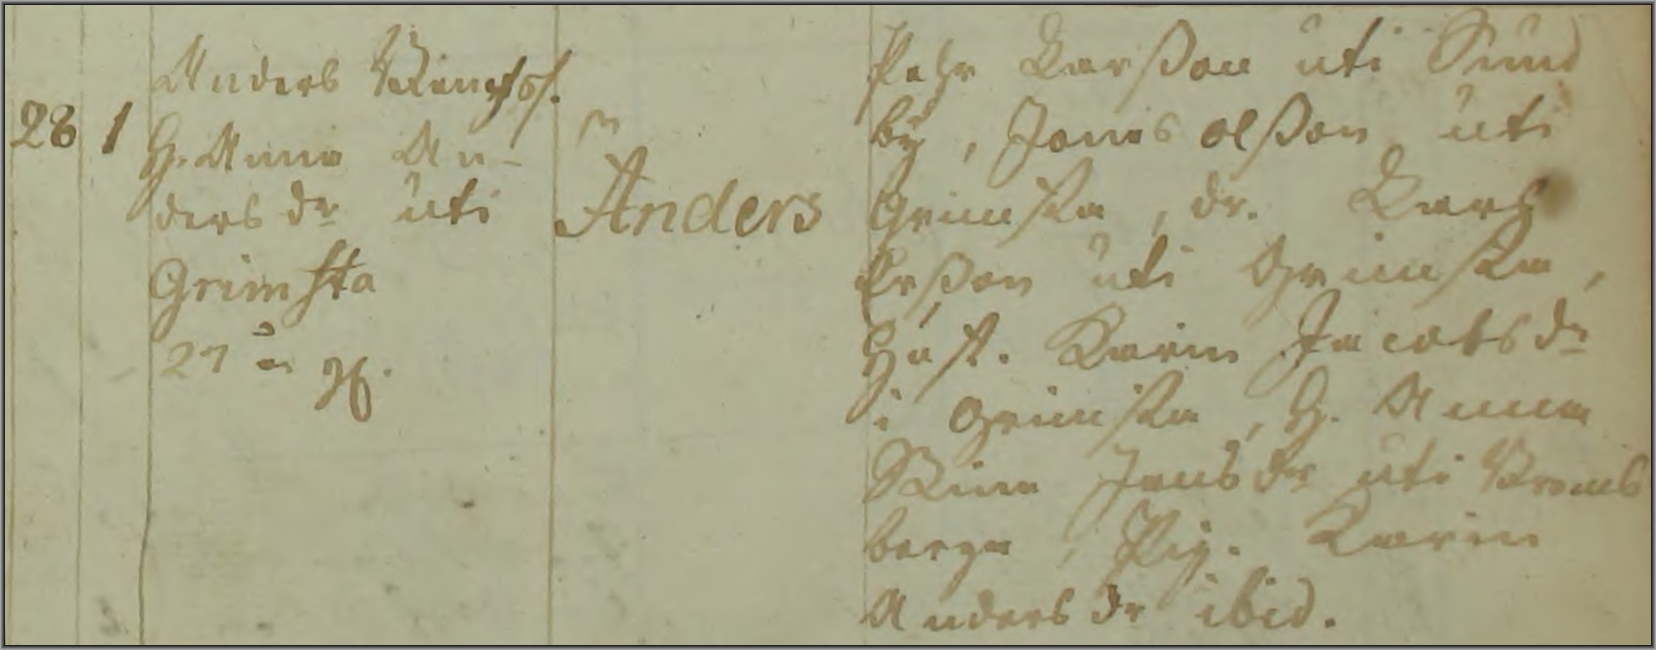 Anders
28 1 H. Anna An-
ders dr uti
Grimsta
27 år gl.
Anders
Pehr Larsson uti Sund
by, Jonas olsson uti
Grimsta, dr. Lars
Ersson uti Grimsta,
Hust. Karin Jacobs dr
i Grimsta, H. Anna
Stina Jans dr uti Broms
berga, Pig. Karin
Anders dr ibid.